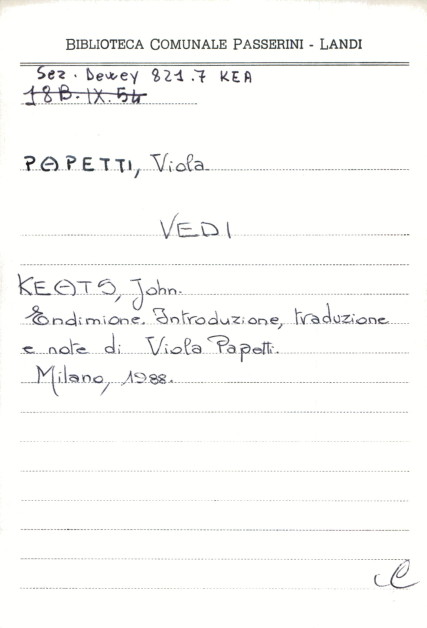 BIBLIOTECA COMUNALE PASSERINI - LANDI
Sez. Dewey 821.7 KEA
18B.IX.54
PAPETTI, Viola
VEDI
KEATS, John.
Endimione. Introduzione, traduzione
e note di Viola Papetti.
Milano, 1988.